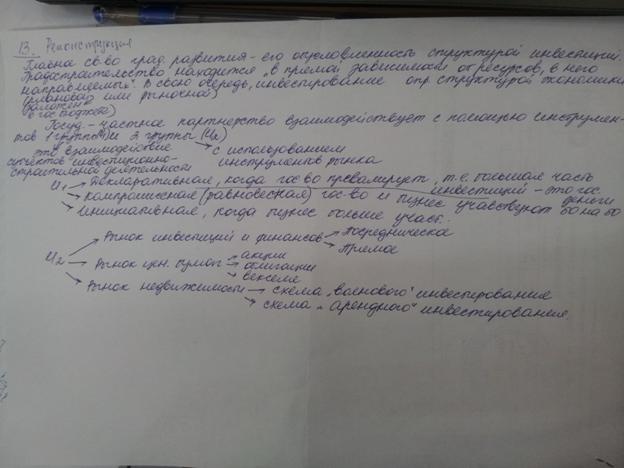 13. Реконструкция
Главное св-во град. развития - его опусловленность структурой инвестиций.
Градостроительство находится "в прямой зависимости от ресурсов, в него
направляемых". В свою очередь, инвестирование опр. структурой экономики
(плановая или рыночная)
заложено
в гос бюджете)
Госуд-частное партнерство взаимодействует с помощью инструмен-
тов 1 группы и 2 группы (И2)
это взаимодействие → с использованием
субъектов инвестиционно- инструментов рынка
строительной деятельности
И1 → Декларативная, когда гос-во превалирует, т.е. большая часть
инвестиций - это гос. деньги
→ Компромиссная (равновесная) гос-во и бизнес учавствуют 50 на 50
→ Инициативная, когда бизнес больше участ.
→ Рынок инвестиций и финансов → Посредническое
→ Прямое
И2 → Рынок цен. бумаг → акции
→ облигации
→ векселя
→ Рынок недвижимости → схема "волнового" инвестирования
→ схема "арендного" инвестирования.